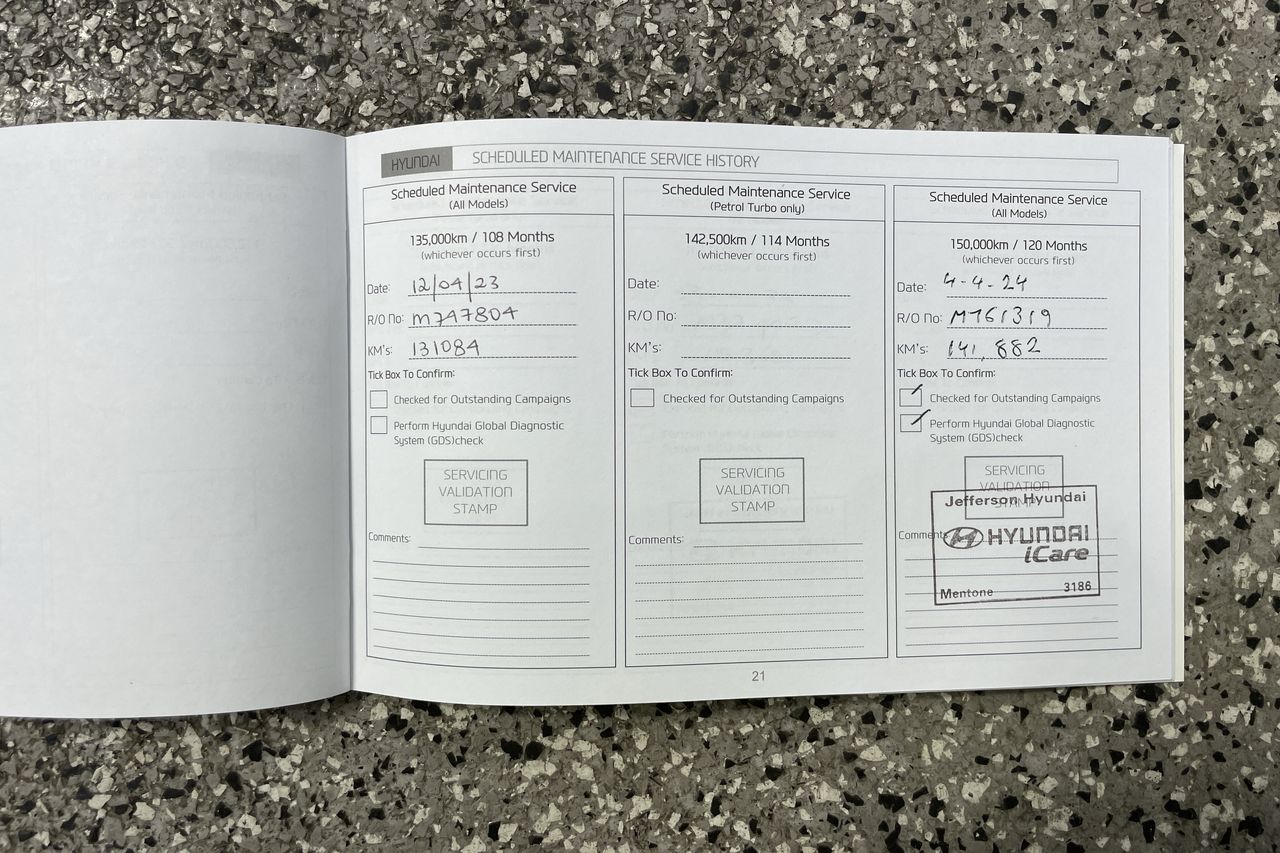 HYUNDAI SCHEDULED MAINTENANCE SERVICE HISTORY
Scheduled Maintenance Service
(All Models)
135,000km / 108 Months
(whichever occurs first)
Date: 12/04/23
R/O No: M747804
KM's: 131084
Tick Box To Confirm:
Checked for Outstanding Campaigns
Perform Hyundai Global Diagnostic
System (GDS)check
SERVICING
VALIDATION
STAMP
Comments:
Scheduled Maintenance Service
(Petrol Turbo only)
142,500km / 114 Months
(whichever occurs first)
Date:
R/O No:
KM's:
Tick Box To Confirm:
Checked for Outstanding Campaigns
SERVICING
VALIDATION
STAMP
Comments:
Scheduled Maintenance Service
(All Models)
150,000km / 120 Months
(whichever occurs first)
Date: 4-4-24
R/O No: M761319
KM's: 141,882
Tick Box To Confirm:
Checked for Outstanding Campaigns
Perform Hyundai Global Diagnostic
System (GDS)check
SERVICING
VALIDATION
STAMP
Jefferson Hyundai
Comments
HYUNDAI
iCare
Mentone 3186
21